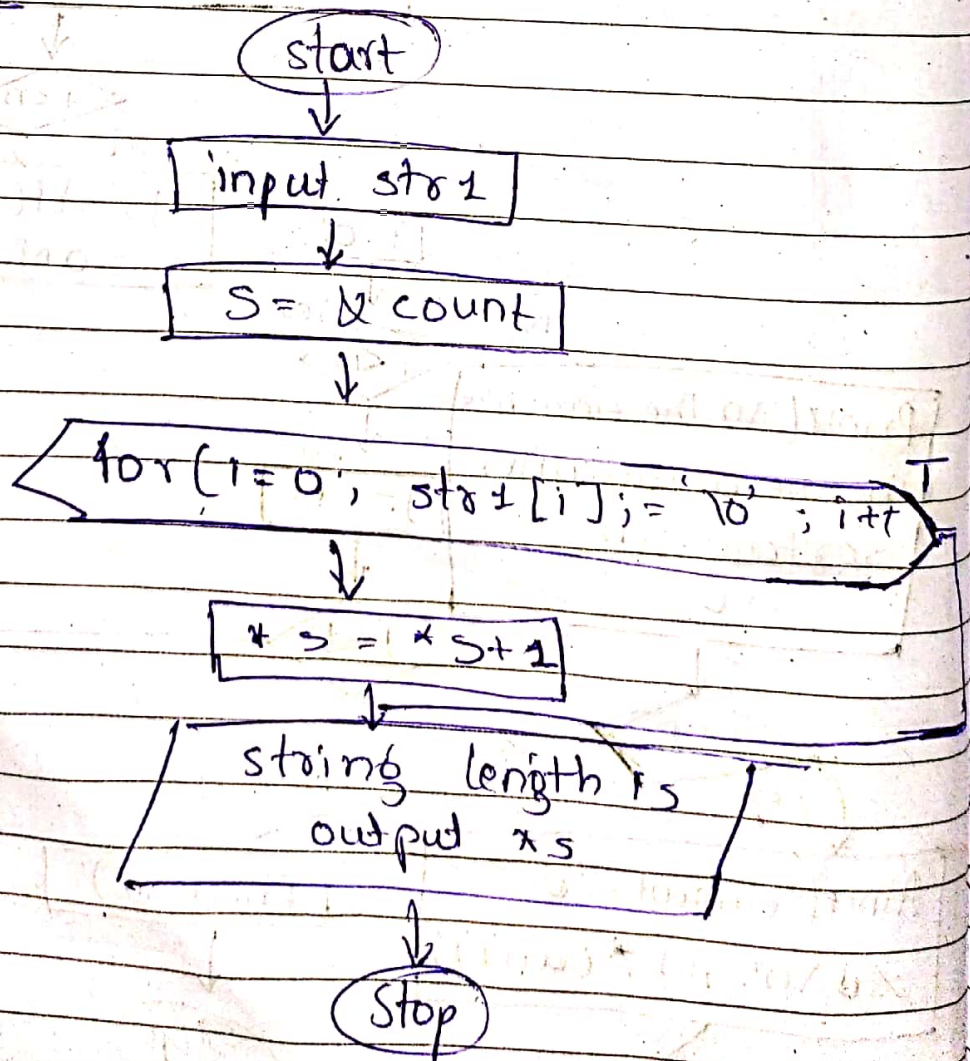 start
input str1
S = & count
for(i=0; str1[i];= '\0' ; i++
T
* s = * s+1
string length is
output *s
Stop